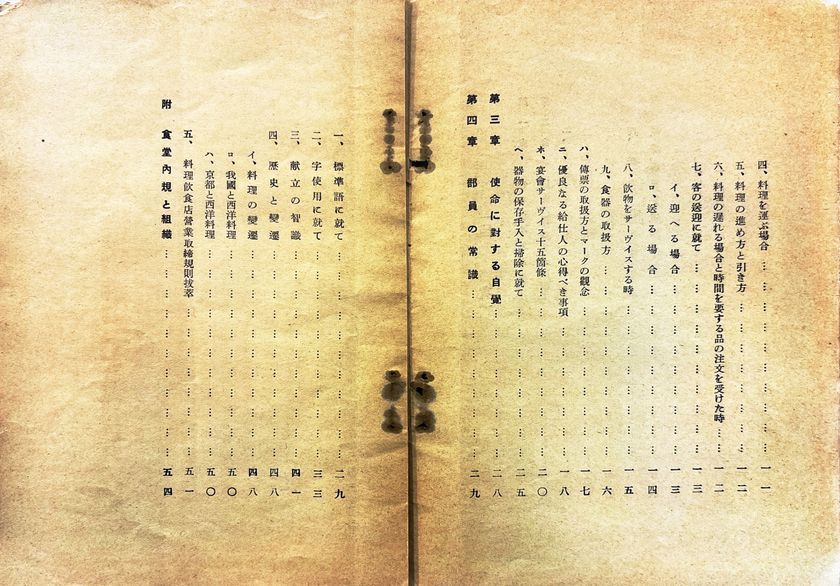 四、料理を運ぶ場合……一一
五、料理の進め方と引き方……一二
六、料理の遅れる場合と時間を要する品の注文を受けた時……一二
七、客の送迎に就て……一三
イ、迎へる場合……一三
ロ、送る場合……一四
八、飲物をサーヴイスする時……一五
九、食器の取扱方……一六
ハ、傳票の取扱方とマークの觀念……一七
ニ、優良なる給仕人の心得べき事項……一八
ホ、宴會サーヴイス十五箇條……二〇
ヘ、器物の保存手入と掃除に就て……二五
第三章 使命に對する自覺……二八
第四章 部員の常識……二九
一、標準語に就て……二九
二、字使用に就て……三三
三、献立の智識……四一
四、歷史と變遷……四八
イ、料理の變遷……四八
ロ、我國と西洋料理……五〇
ハ、京都と西洋料理……五〇
五、料理飲食店營業取締規則拔萃……五一
附 食堂內規と組織……五四